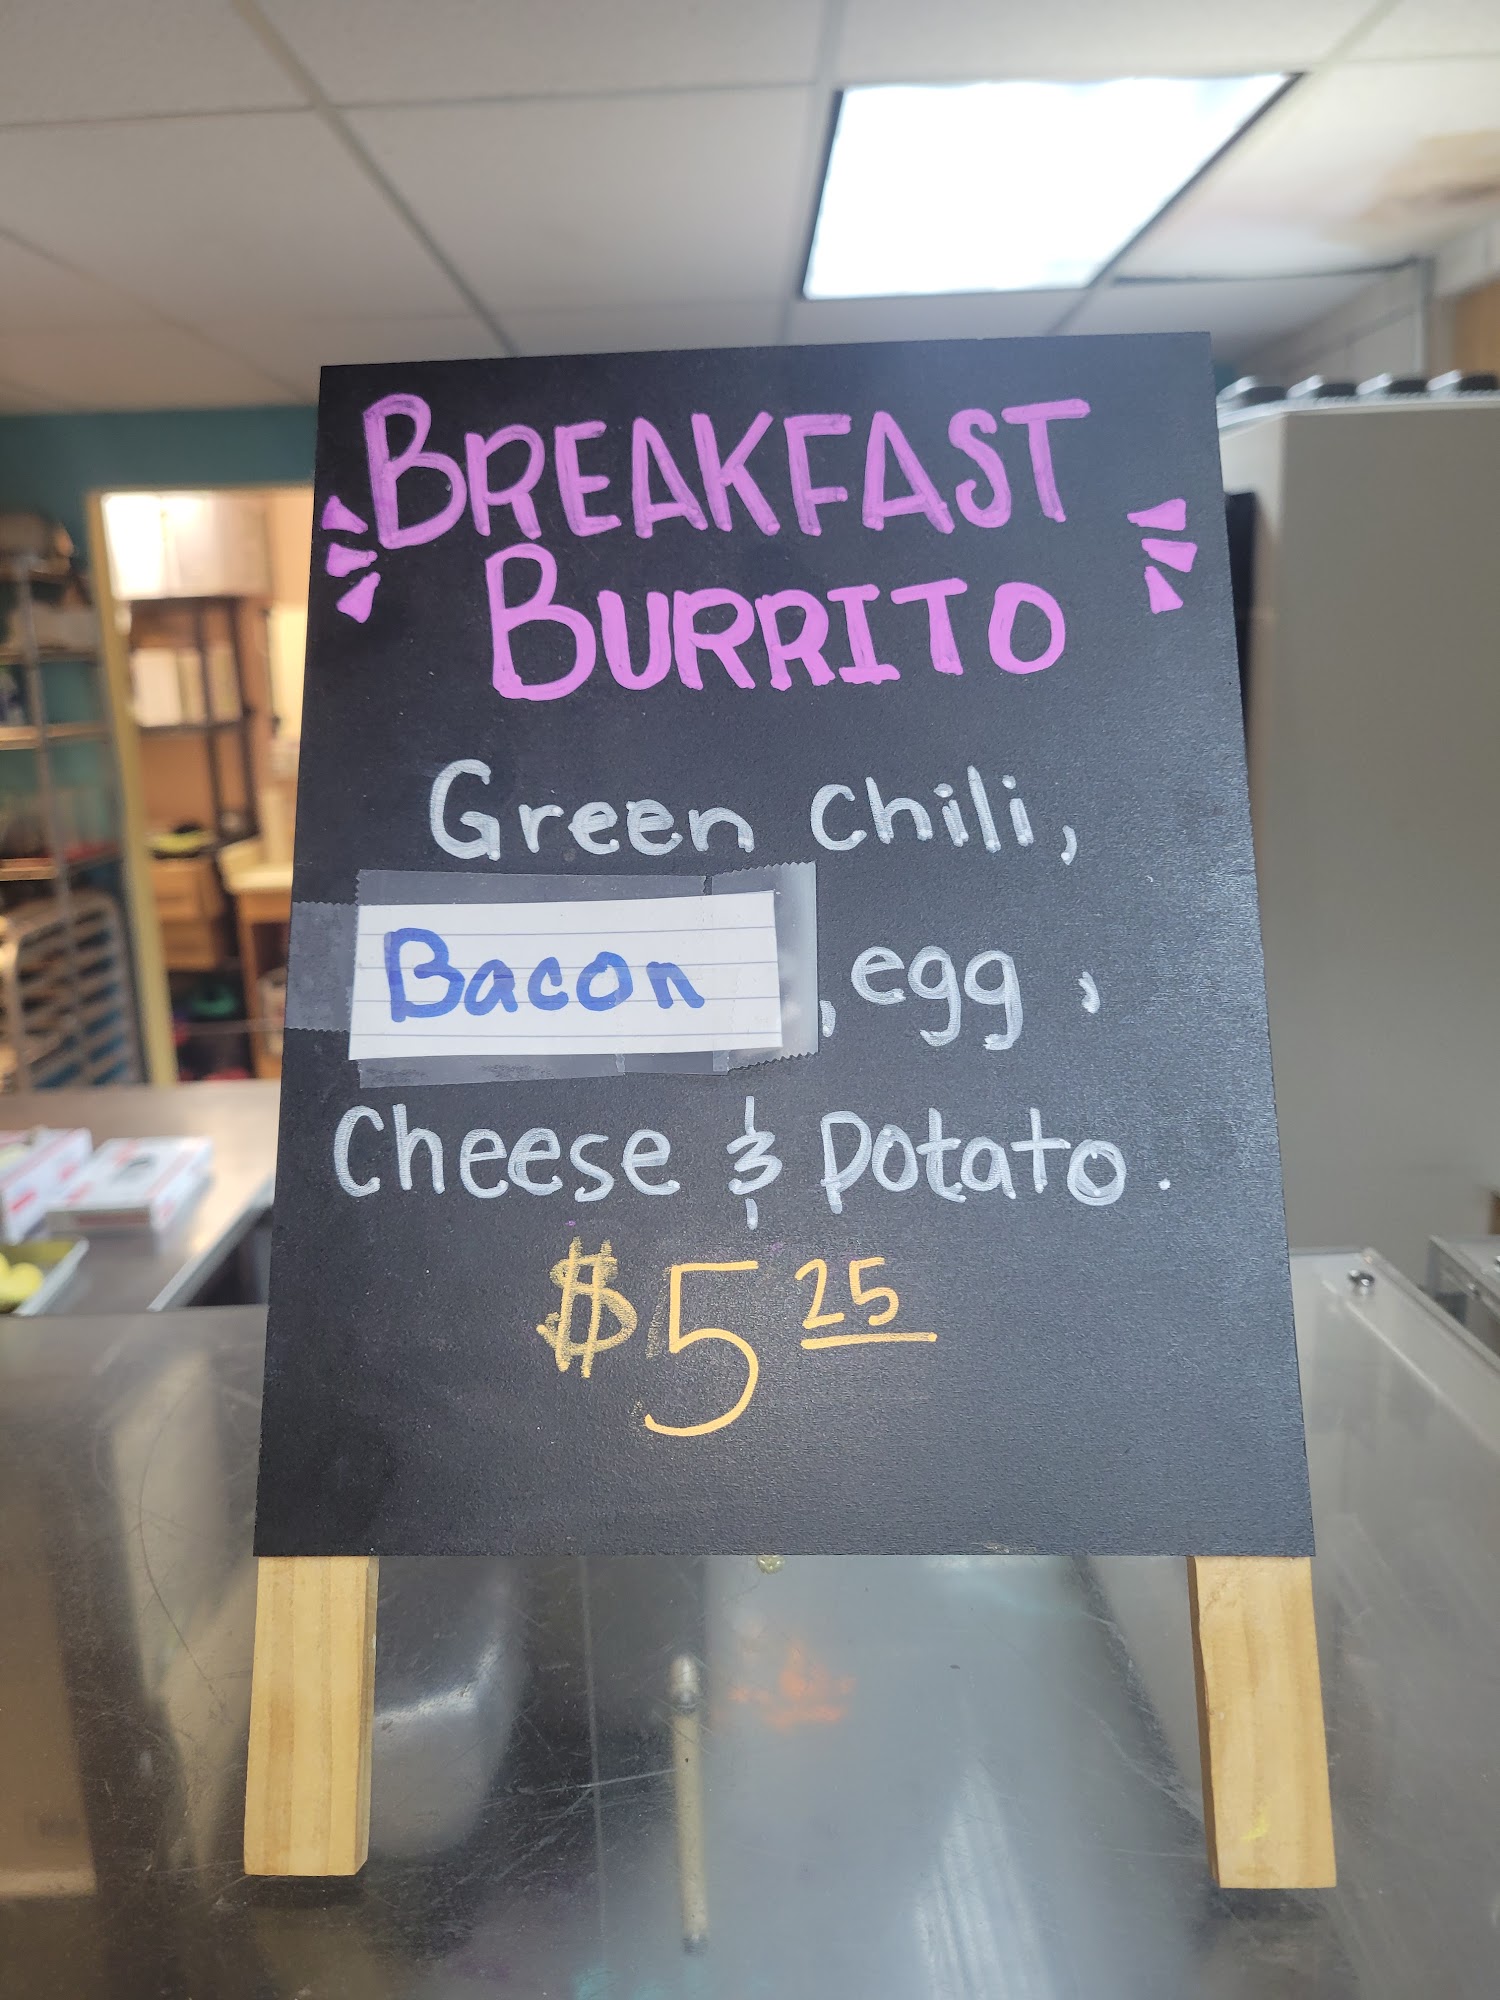 BREAKFAST
BURRITO
Green chili,
Bacon, egg,
Cheese & potato.
$5 25